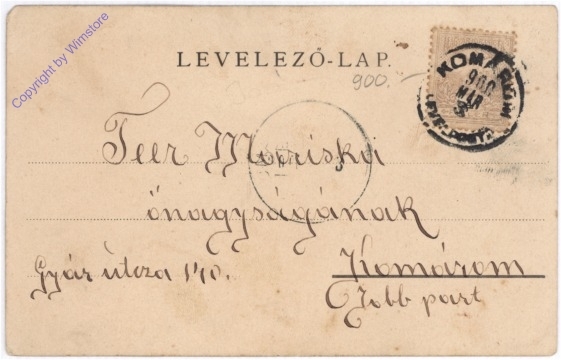 Copyright by Wimstore
LEVELEZŐ-LAP.
900.
KOMÁROM
900
MÁR
Teer Mariska
önagyságának
Gyár útcza 140.
Komárom
Jobb part